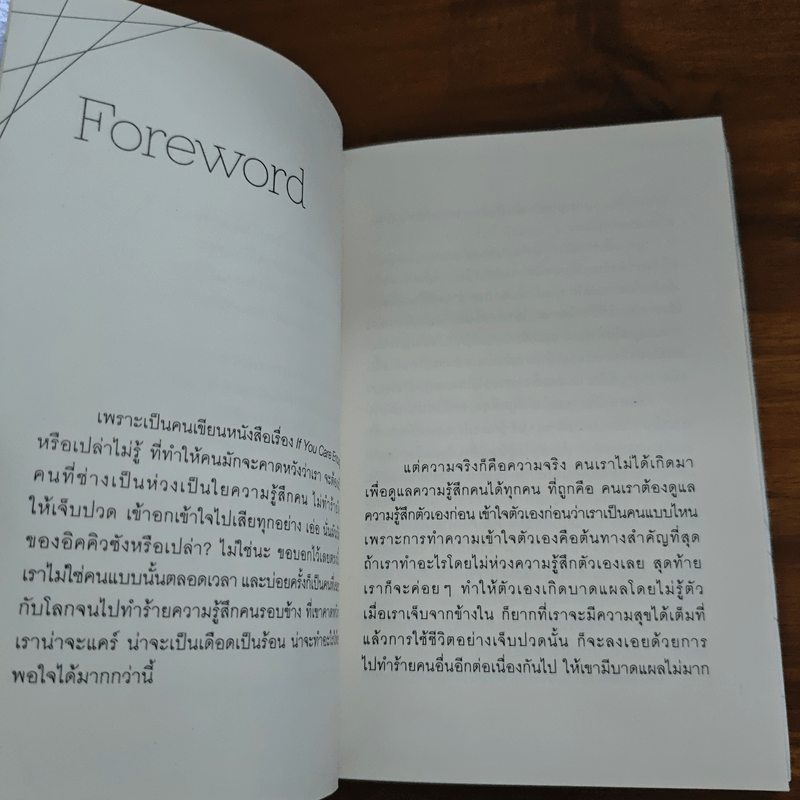 Foreword
เพราะเป็นคนเขียนหนังสือเรื่อง If You Care
หรือเปล่าไม่รู้ ที่ทำให้คนมักจะคาดหวังว่าเรา จะต้อง
คนที่ช่างเป็นห่วงเป็นใยความรู้สึกคน ไม่ทำร้าย
ให้เจ็บปวด เข้าอกเข้าใจไปเสียทุกอย่าง เอ่อ
ของอิคคิวซังหรือเปล่า? ไม่ใช่นะ ขอบอกไว้เลย
เราไม่ใช่คนแบบนั้นตลอดเวลา และบ่อยครั้งก็เป็นคน
กับโลกจนไปทำร้ายความรู้สึกคนรอบข้าง ที่เขาคาด
เราน่าจะแคร์ น่าจะเป็นเดือดเป็นร้อน น่าจะทำอะไร
พอใจได้มากกว่านี้
แต่ความจริงก็คือความจริง คนเราไม่ได้เกิดมา
เพื่อดูแลความรู้สึกคนได้ทุกคน ที่ถูกคือ คนเราต้องดูแล
ความรู้สึกตัวเองก่อน เข้าใจตัวเองก่อนว่าเราเป็นคนแบบไหน
เพราะการทำความเข้าใจตัวเองคือต้นทางสำคัญที่สุด
ถ้าเราทำอะไรโดยไม่ห่วงความรู้สึกตัวเองเลย สุดท้าย
เราก็จะค่อยๆ ทำให้ตัวเองเกิดบาดแผลโดยไม่รู้ตัว
เมื่อเราเจ็บจากข้างใน ก็ยากที่เราจะมีความสุขได้เต็มที่
แล้วการใช้ชีวิตอย่างเจ็บปวดนั้น ก็จะลงเอยด้วยการ
ไปทำร้ายคนอื่นอีกต่อเนื่องกันไป ให้เขามีบาดแผลไม่มาก